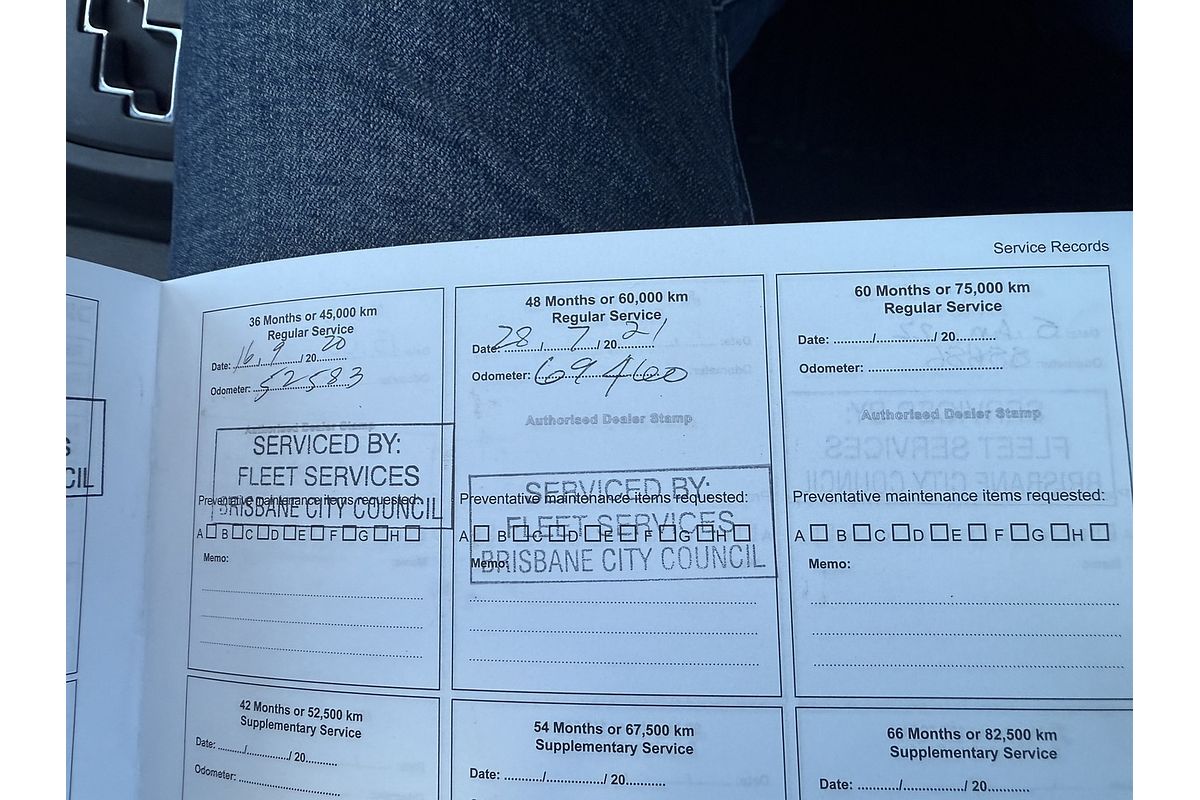 Service Records
36 Months or 45,000 km
Regular Service
Date: 16 / 9 / 20 20
Odometer: 52583
SERVICED BY:
FLEET SERVICES
BRISBANE CITY COUNCIL
Preventative maintenance items requested:
A B C D E F G H
Memo:
48 Months or 60,000 km
Regular Service
Date: 28 / 7 / 20 21
Odometer: 69460
Authorised Dealer Stamp
SERVICED BY:
FLEET SERVICES
BRISBANE CITY COUNCIL
Preventative maintenance items requested:
A B C D E F G H
Memo:
60 Months or 75,000 km
Regular Service
Date: ........../................/ 20..........
Odometer: ....................................
Authorised Dealer Stamp
Preventative maintenance items requested:
A B C D E F G H
Memo:
42 Months or 52,500 km
Supplementary Service
Date: ........../................/ 20..........
Odometer: ....................................
54 Months or 67,500 km
Supplementary Service
Date: ........../................/ 20..........
66 Months or 82,500 km
Supplementary Service
Date: ........../................/ 20..........